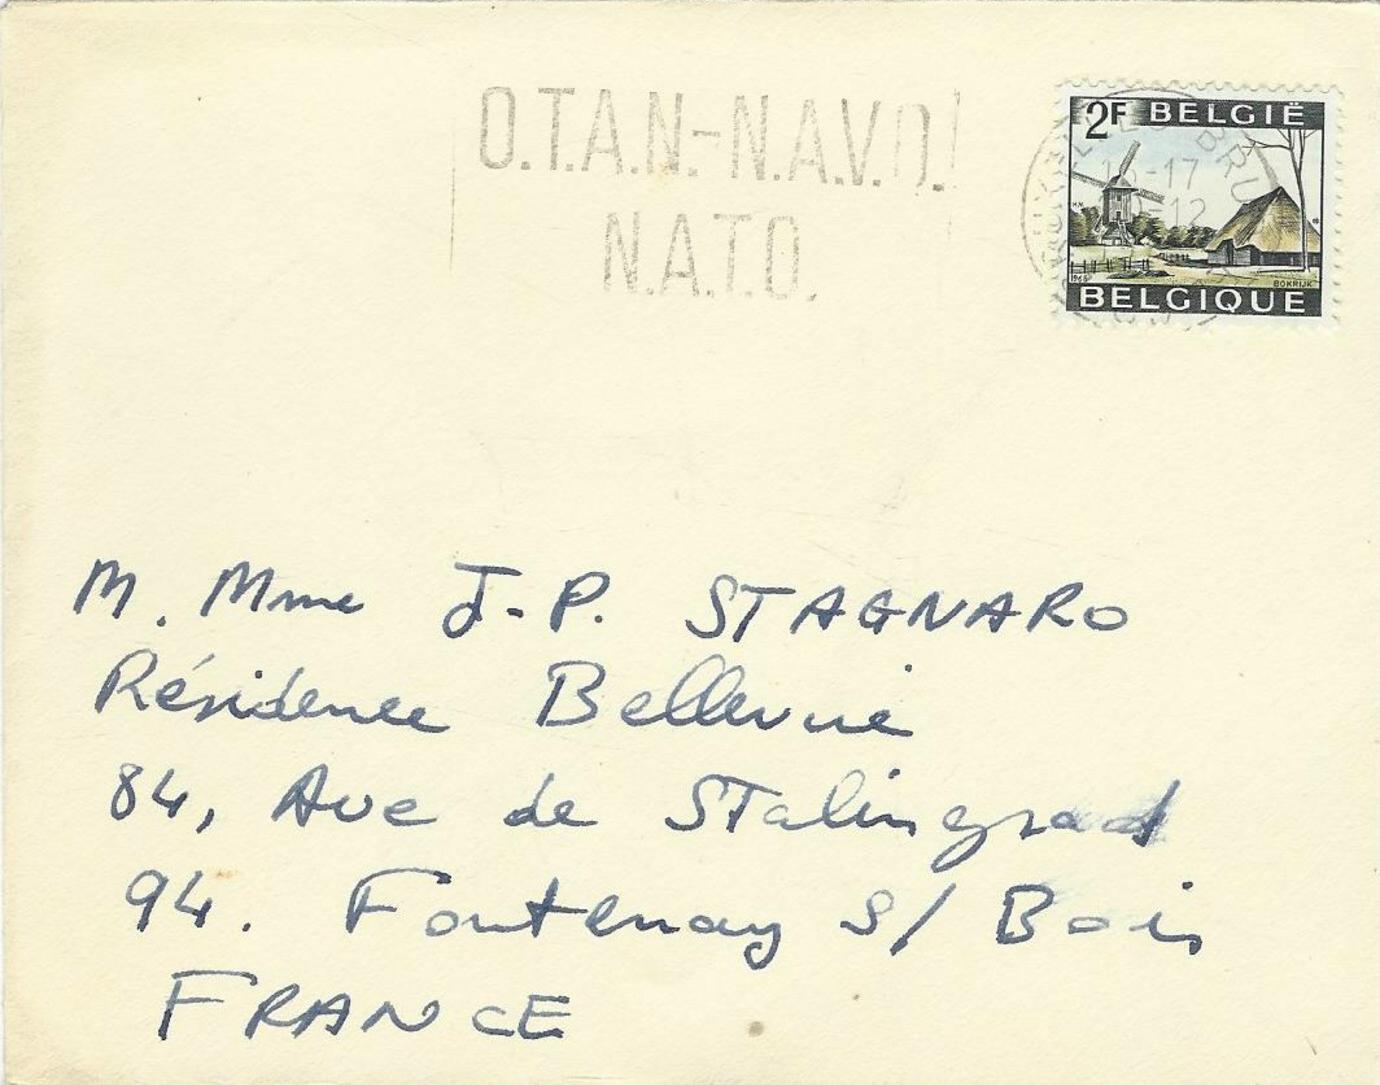 O.T.A.N.-N.A.V.O.
N.A.T.O.
2F BELGIË
16-17
-12
BRU
BOKRIJK
BELGIQUE
M. Mme J-P. STAGNARO
Résidence Bellevue
84, Ave de Stalingrad
94. Fontenay s/ Bois
FRANCE